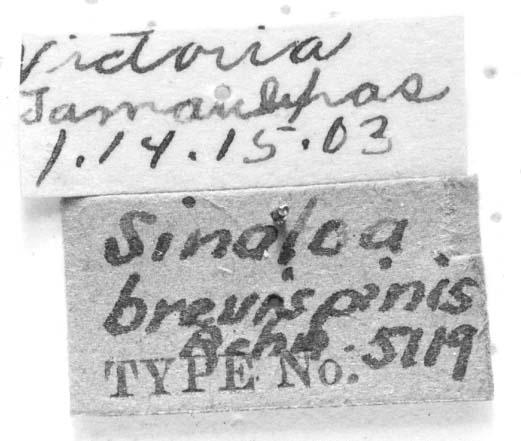 Victoria
Tamaulipas
1.14.15.03
Sinaloa
brevispinis
Ashm
TYPE No. 5119